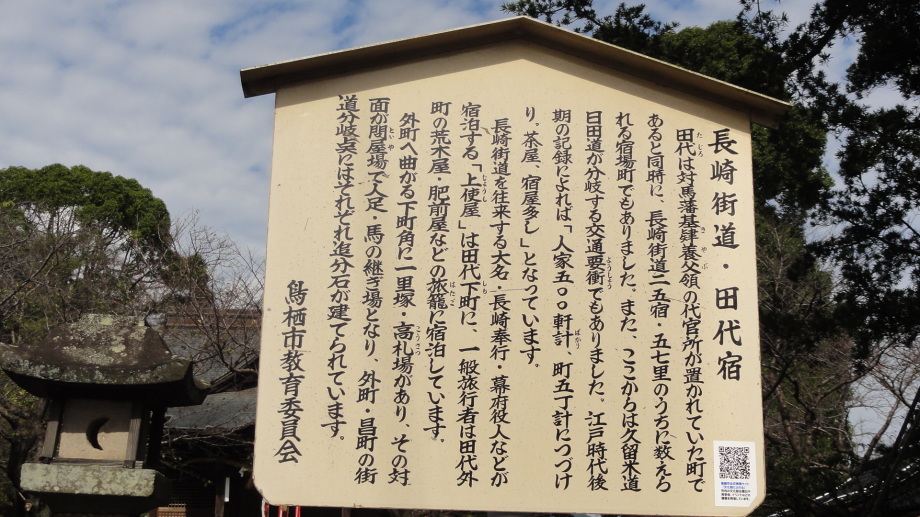 長崎街道・田代宿
田代は対馬藩基肄養父領の代官所が置かれていた町で
あると同時に、長崎街道二五宿・五七里のうちに数えら
れる宿場町でもありました。また、ここからは久留米道
日田道が分岐する交通要衝でもありました。江戸時代後
期の記録によれば「人家五〇〇軒計、町五丁計につづけ
り。茶屋、宿屋多し」となっています。
長崎街道を往来する大名・長崎奉行・幕府役人などが
宿泊する「上使屋」は田代下町に、一般旅行者は田代外
町の荒木屋・肥前屋などの旅籠に宿泊しています。
外町へ曲がる下町角に一里塚・高札場があり、その対
面が問屋場で人足・馬の継ぎ場となり、外町・昌町の街
道分岐点にはそれぞれ追分石が建てられています。
鳥栖市教育委員会